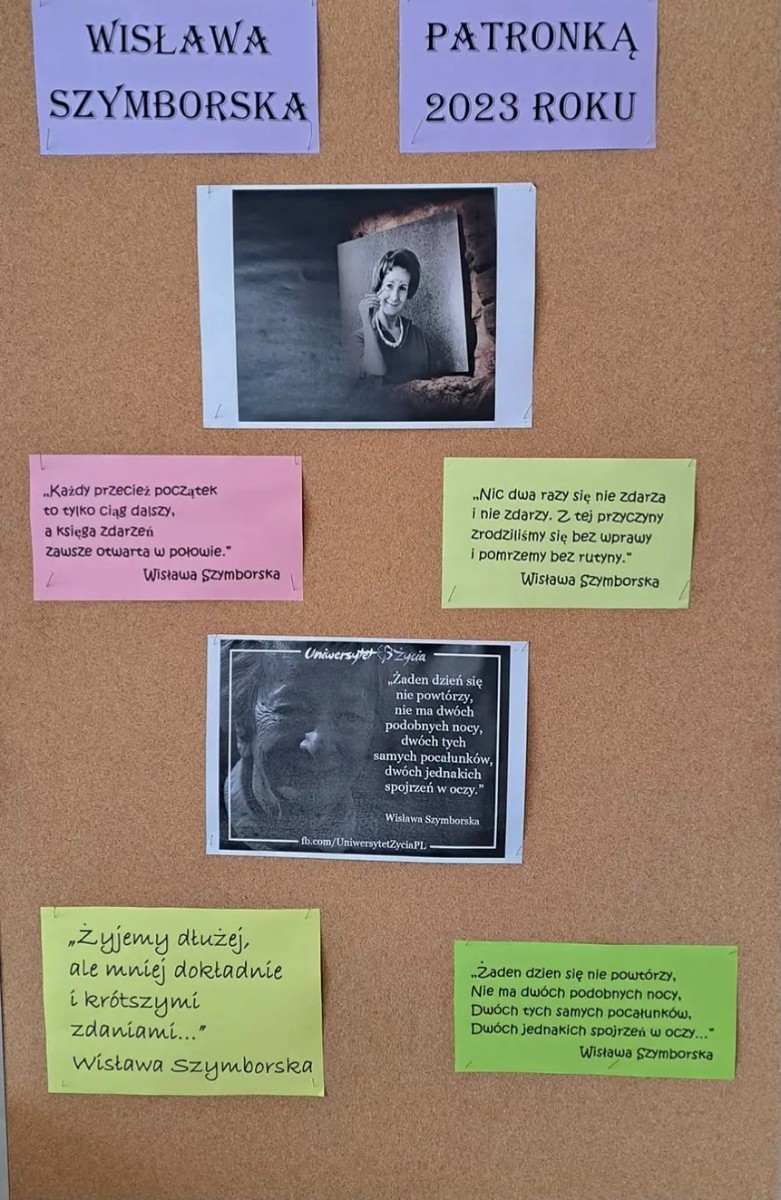 WISŁAWA
SZYMBORSKA
PATRONKĄ
2023 ROKU
„Każdy przecież początek
to tylko ciąg dalszy,
a księga zdarzeń
zawsze otwarta w połowie.”
Wisława Szymborska
„Nic dwa razy się nie zdarza
i nie zdarzy. Z tej przyczyny
zrodziliśmy się bez wprawy
i pomrzemy bez rutyny.”
Wisława Szymborska
Uniwersytet Życia
„Żaden dzień się
nie powtórzy,
nie ma dwóch
podobnych nocy,
dwóch tych
samych pocałunków,
dwóch jednakich
spojrzeń w oczy.”
Wisława Szymborska
fb.com/UniwersytetZyciaPL
„Żyjemy dłużej,
ale mniej dokładnie
i krótszymi
zdaniami...”
Wisława Szymborska
„Żaden dzien się nie powtórzy,
Nie ma dwóch podobnych nocy,
Dwóch tych samych pocałunków,
Dwóch jednakich spojrzeń w oczy...”
Wisława Szymborska